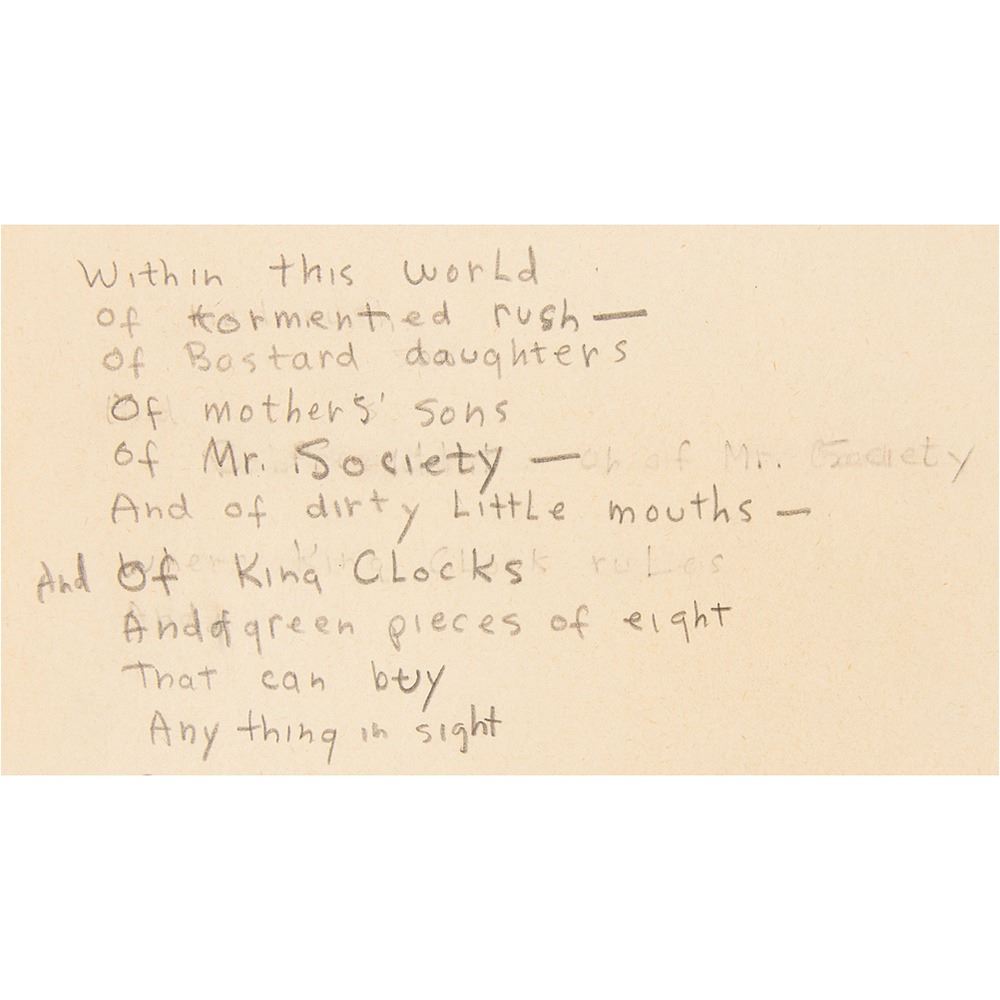 Within this world
Of tormented rush —
Of Bastard daughters
Of mothers' sons
Of Mr. Society — of Mr. Society
And of dirty Little mouths —
And Of King Clocks
And of green pieces of eight
That can buy
Any thing in sight